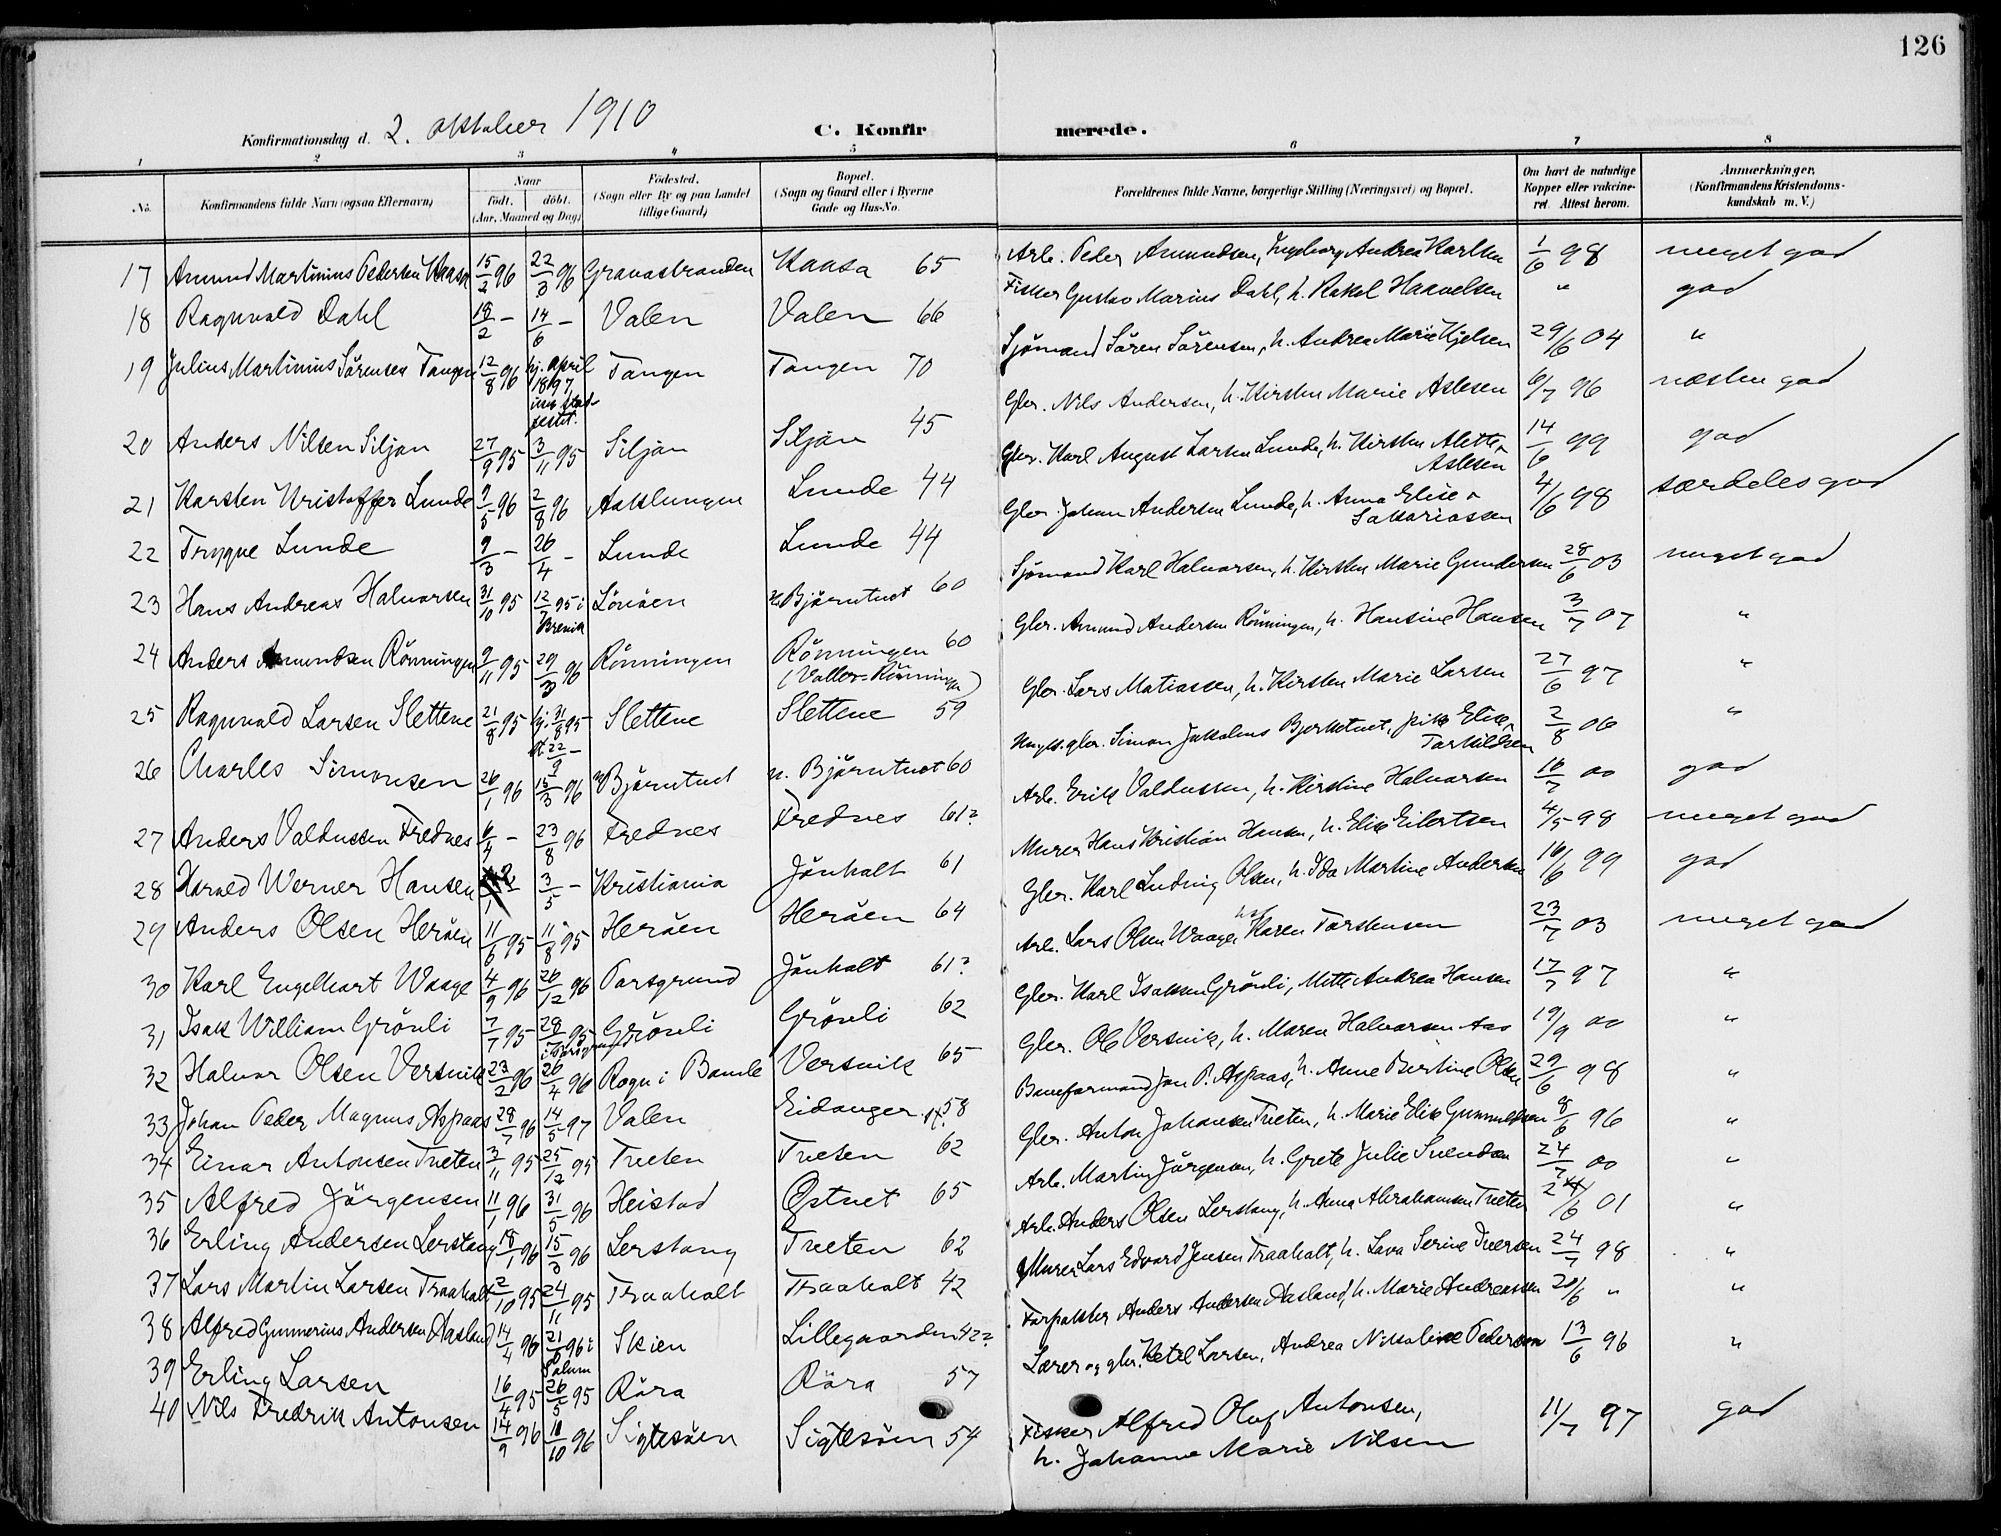 126
Konfirmationsdag d. 2. oktober 1910
C. Konfirmerede.
1 2 3 4 5 6 7 8
No.
Konfirmandens fulde Navn (ogsaa Efternavn)
Naar
födt. döbt.
(Aar, Maaned og Dag)
Födested.
(Sogn eller By og paa Landet
tillige Gaard)
Bopæl.
(Sogn og Gaard eller i Byerne
Gade og Hus-No.
Forældrenes fulde Navne, borgerlige Stilling (Næringsvei) og Bopæl.
Om havt de naturlige
Kopper eller vakcine-
ret. Attest herom.
Anmærkninger.
(Konfirmandens Kristendoms-
kundskab m. V.)
17 Amund Martinius Pedersen Kaasa 15/2 96 22/3 96 Gravastranden Kaasa 65 Arb. Peder Amundsen, Ingeborg Andrea Karlsen 1/6 98 meget god
18 Ragnvald Dahl 18/2 – 14/6 – Valen Valen 66 Fisker Gustav Marius Dahl, h. Rakel Haavelsen " god
19 Julius Martinius Sörensen Tangen 12/8 96 hj. april 1897 stad-festet. Tangen Tangen 70 Sjömand Sören Sörensen, h. Andrea Marie Kjelsen 29/6 04 "
20 Anders Nilsen Siljan 27/9 95 3/11 95 Siljan Siljan 45 Gbr. Nils Andersen, h. Kirsten Marie Aslesen 6/7 96 næsten god
21 Karsten Kristoffer Lunde 9/5 96 2/8 96 Aaklungen Lunde 44 Gbr. Karl August Larsen Lunde, h. Kirsten Alette Aslesen 14/6 99 god
22 Trygve Lunde 9/3 – 26/4 – Lunde Lunde 44 Gbr. Johan Andersen Lunde, h. Anna Elise Sakariassen 4/6 98 særdeles god
23 Hans Andreas Halvorsen 31/10 95 12/7 95 i Brevik Lönöen n. Björntvet 60 Sjömand Karl Halvorsen, h. Kirsten Marie Gundersen 28/6 03 meget god
24 Anders Amundsen Rönningen 9/11 95 29/3 96 Rönningen Rönningen 60 (Valler-Rönningen) Gbr. Amund Andersen Rönningen, h. Hansine Hansen 3/7 07 "
25 Ragnvald Larsen Slettene 21/8 95 hj. 31/8 95 st. 22/9 – Slettene Slettene 59 Gbr. Lars Matiassen, h. Kirsten Marie Larsen 27/6 97 "
26 Charles Simonsen 26/1 96 15/3 96 n. Björntvet n. Björntvet 60 gbr. Simon Bjerketvet, pike Elise Torkildsen 2/8 06 "
27 Anders Valdussen Frednes 6/4 – 23/8 96 Frednes Frednes 61? Arb. Erik Valdussen, h. Kirstine Halvorsen 16/7 00 god
28 Harald Werner Hansen 3/5 – Kristiania Jönholt 61 Murer Hans Kristian Hansen, h. Elise Eilertsen 4/5 98 meget god
29 Anders Olsen Heröen 11/6 95 11/8 95 Heröen Heröen 64 Gbr. Karl Ludvig Olsen, h. Ida Martine Andersen 16/6 99 god
30 Karl Engelhart Waage 4/9 96 26/12 96 Porsgrund Jönholt 61? Arb. Lars Olsen Waage, Karen Torstensen 23/7 03 meget god
31 Isak William Grönli 7/7 95 28/7 95 Grönli Grönli 62 Gbr. Karl Isaksen Grönli, Mette Andrea Hansen 17/7 97 "
32 Halvor Olsen Versvik 23/2 96 26/4 96 Rogn i Bamle Versvik 65 Gbr. Ole Versvik, h. Maren Halvorsen Aas 19/9 00 "
33 Johan Peder Magnus Aspaas 28/7 96 14/5 97 Valen Eidanger st. 58 Baneformand Jon P. Aspaas, h. Anne Bertine Olsen 29/6 98 "
34 Einar Antonsen Tveten 3/11 95 25/12 95 Tveten Tveten 62 Gbr. Anton Johansen Tveten, h. Marie Elise Gunnuldsen 8/6 96 "
35 Alfred Jörgensen 11/1 96 31/5 96 Heistad Östvet 65 Arb. Martin Jörgensen, h. Grete Julie Svendsen 24/7 00 "
36 Erling Andersen Lerstang 18/1 96 15/3 96 Lerstang Tveten 62 Arb. Anders Olsen Lerstang, h. Anna Abrahamsen Tveten 24/6 01 "
37 Lars Martin Larsen Traaholt 2/10 95 24/11 95 Traaholt Traaholt 42 Murer Lars Edvard Jensen Traaholt, h. Lava Serine Iversen 24/7 98 "
38 Alfred Gunnerius Andersen Aasland 14/4 96 21/6 96 i Solum Skien Lillegaarden 42? Forpakter Anders Andersen Aasland, h. Marie Andreassen 20/6 " "
39 Erling Larsen 16/4 95 26/5 95 Röra Röra 57 Lærer og gbr. Ketil Larsen, Andrea Nikoline Pedersen 13/6 96 "
40 Nils Fredrik Antonsen 14/9 96 18/10 96 Sigtesöen Sigtesöen 54 Fisker Alfred Oluf Antonsen, h. Johanne Marie Nilsen 11/7 97 god